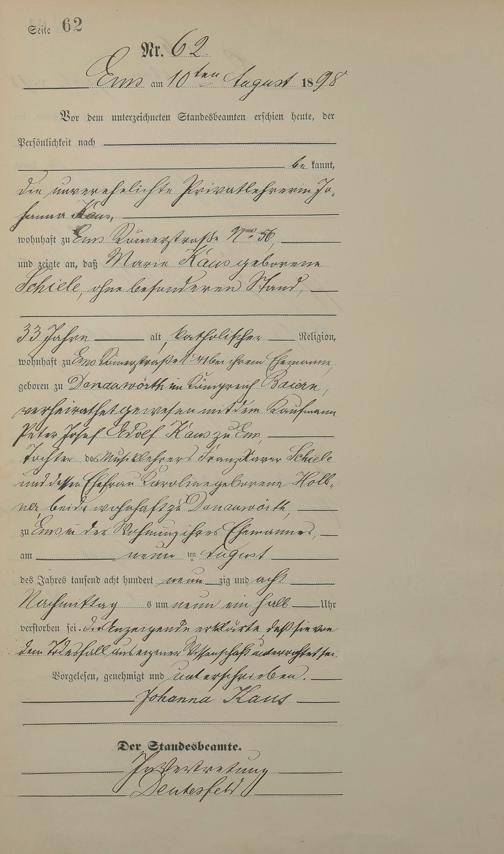 Seite 62
Nr. 62.
Ems am 10ten August 1898
Vor dem unterzeichneten Standesbeamten erschien heute, der
Persönlichkeit nach
be kannt,
die unverehelichte Privatlehrerin Jo-
hanna Kaus,
wohnhaft zu Ems Römerstraße No 56,
und zeigte an, daß Marie Kaus geborene
Schiele, ohne besonderen Stand,
33 Jahre alt, katholischer Religion,
wohnhaft zu Ems Römerstraße bei ihrem Ehemann,
geboren zu Donauwörth im Königreich Baiern,
verheirathet gewesen mit dem Kaufmann
Peter Josef Adolf Kaus zu Ems,
Tochter des Musiklehrers Franz Xaver Schiele
und dessen Ehefrau Karoline geborene Holl-
beide wohnhaft zu Donauwörth,
zu Ems in der Wohnung ihres Ehemannes,
am neunten August
des Jahres tausend acht hundert neunzig und acht
Nachmittags um neun ein halb Uhr
verstorben sei. Die Anzeigende erklärte, daß sie von
dem Todesfall aus eigener Wissenschaft unterrichtet sei.
Vorgelesen, genehmigt und unterschrieben.
Johanna Kaus
Der Standesbeamte.
In Vertretung